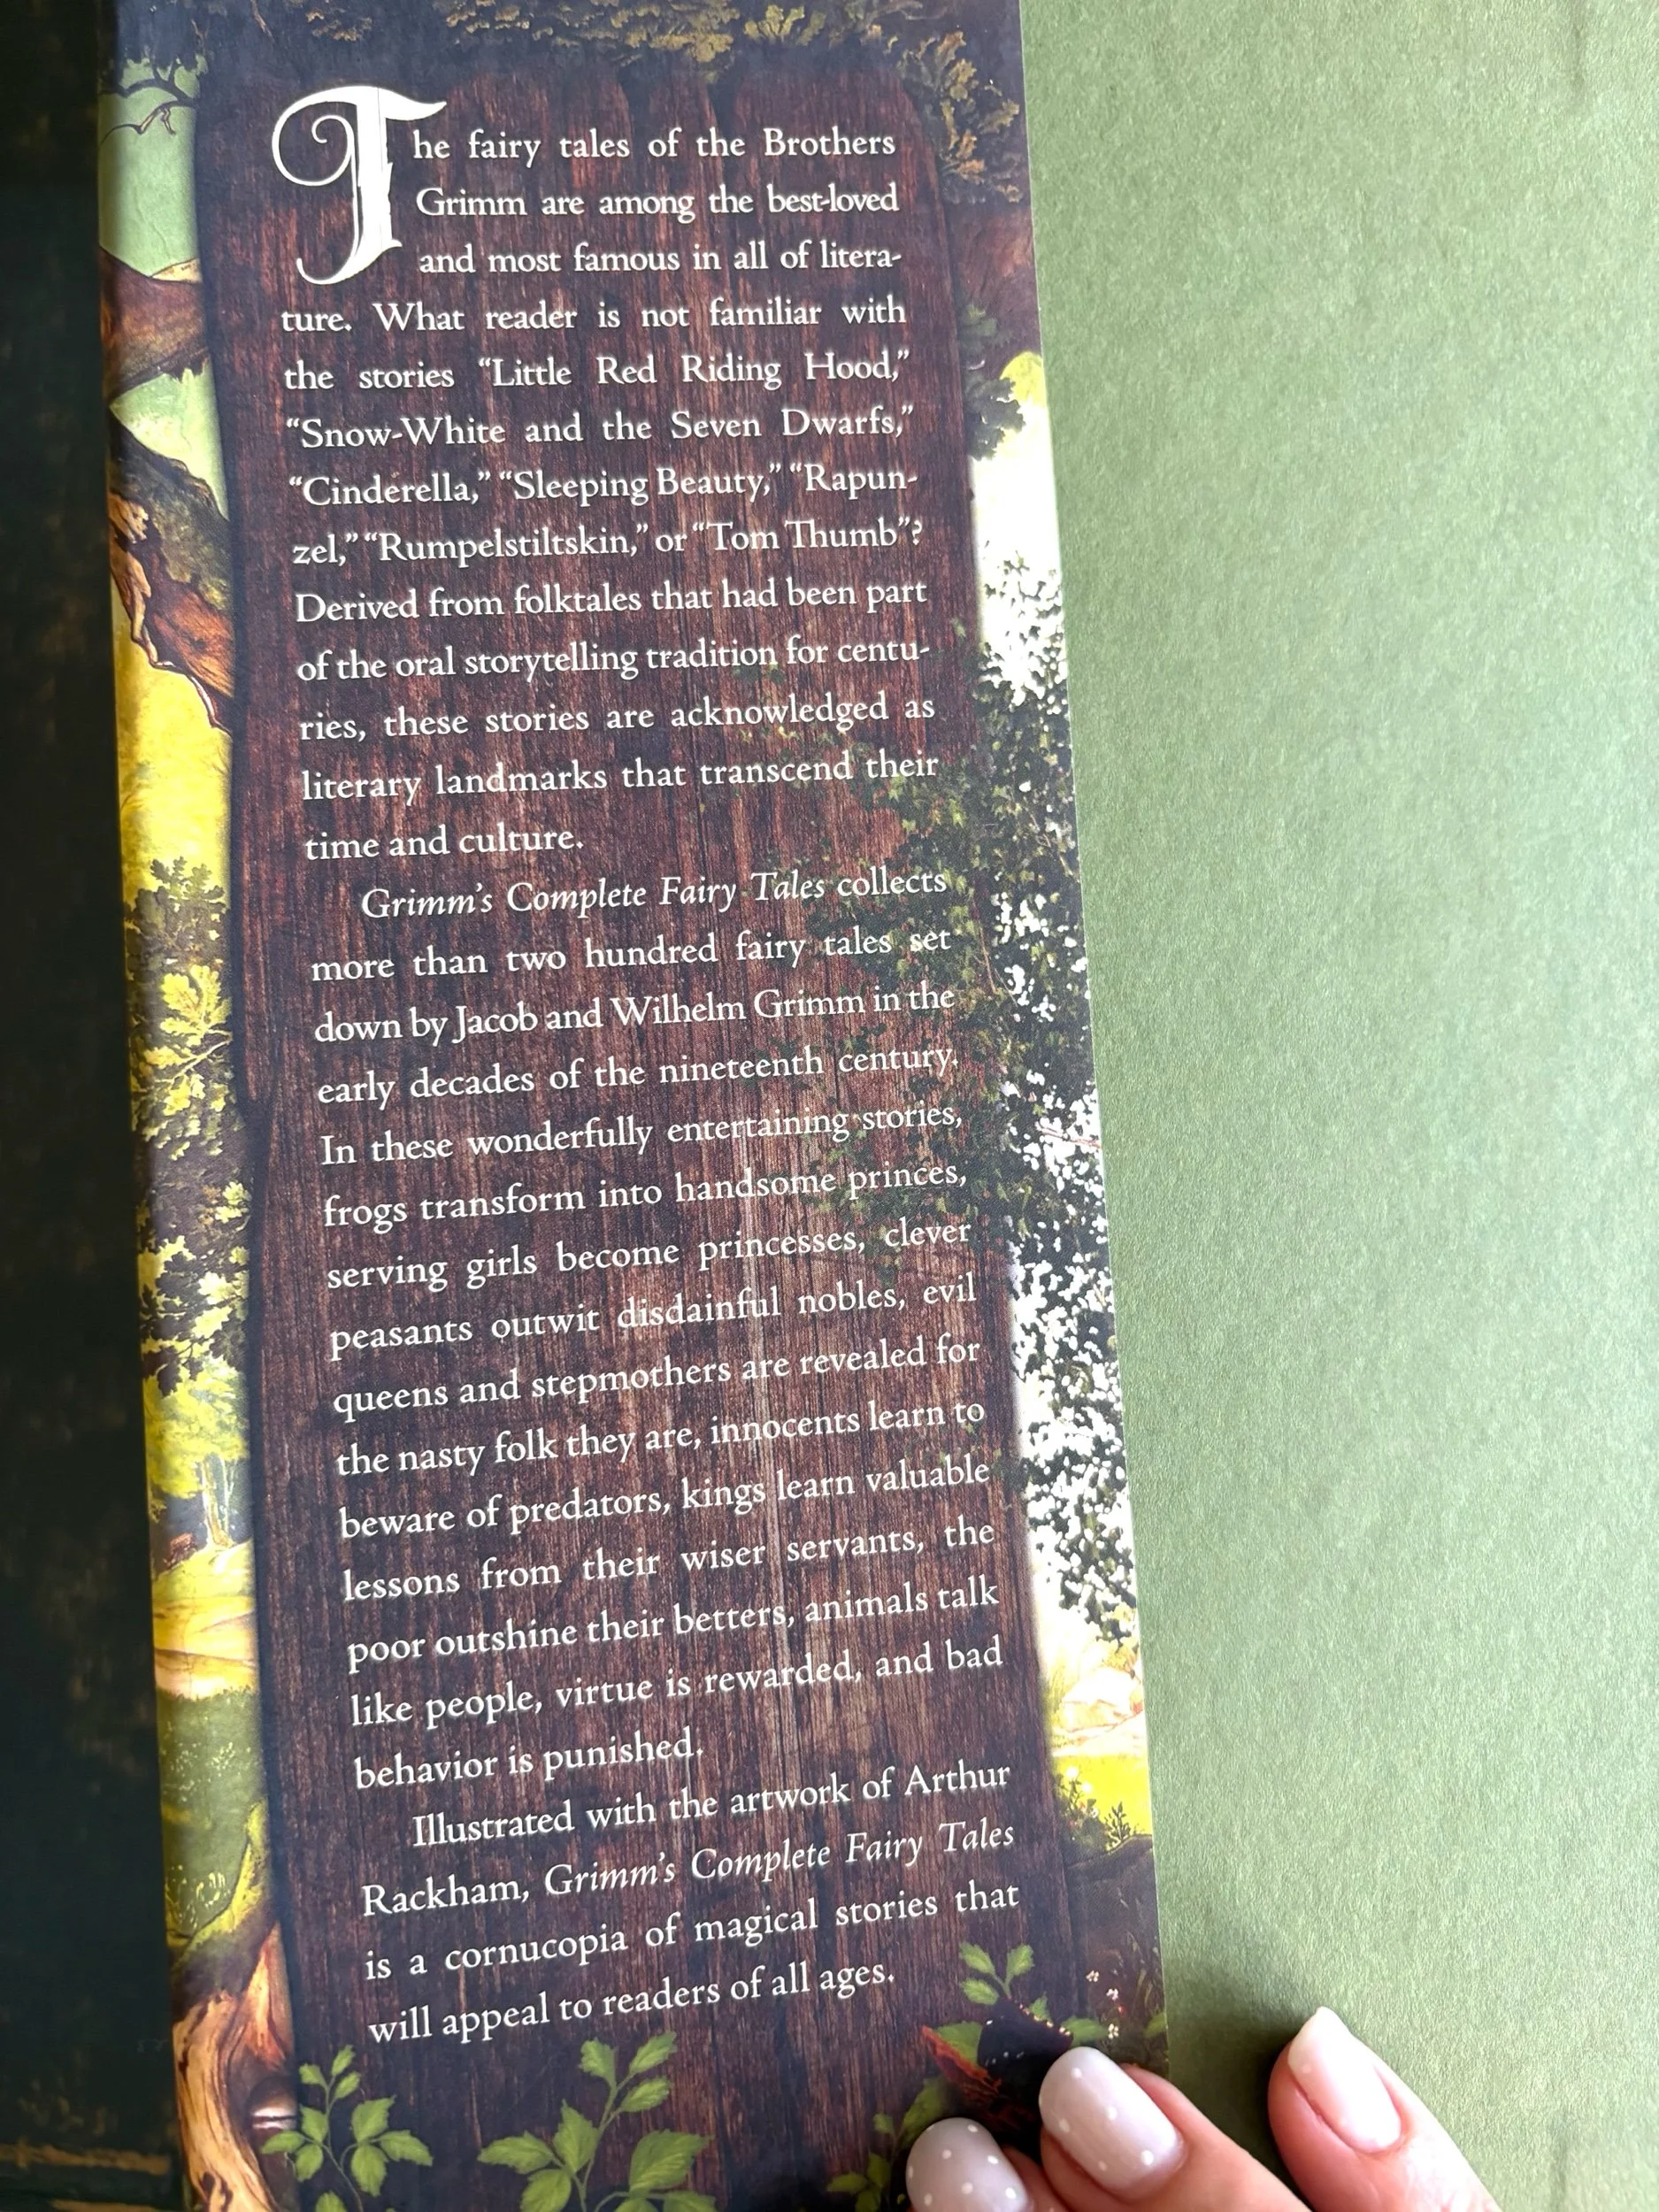 The fairy tales of the Brothers
Grimm are among the best-loved
and most famous in all of litera-
ture. What reader is not familiar with
the stories “Little Red Riding Hood,”
“Snow-White and the Seven Dwarfs,”
“Cinderella,” “Sleeping Beauty,” “Rapun-
zel,” “Rumpelstiltskin,” or “Tom Thumb”?
Derived from folktales that had been part
of the oral storytelling tradition for centu-
ries, these stories are acknowledged as
literary landmarks that transcend their
time and culture.
Grimm’s Complete Fairy Tales collects
more than two hundred fairy tales set
down by Jacob and Wilhelm Grimm in the
early decades of the nineteenth century.
In these wonderfully entertaining stories,
frogs transform into handsome princes,
serving girls become princesses, clever
peasants outwit disdainful nobles, evil
queens and stepmothers are revealed for
the nasty folk they are, innocents learn to
beware of predators, kings learn valuable
lessons from their wiser servants, the
poor outshine their betters, animals talk
like people, virtue is rewarded, and bad
behavior is punished.
Illustrated with the artwork of Arthur
Rackham, Grimm’s Complete Fairy Tales
is a cornucopia of magical stories that
will appeal to readers of all ages.